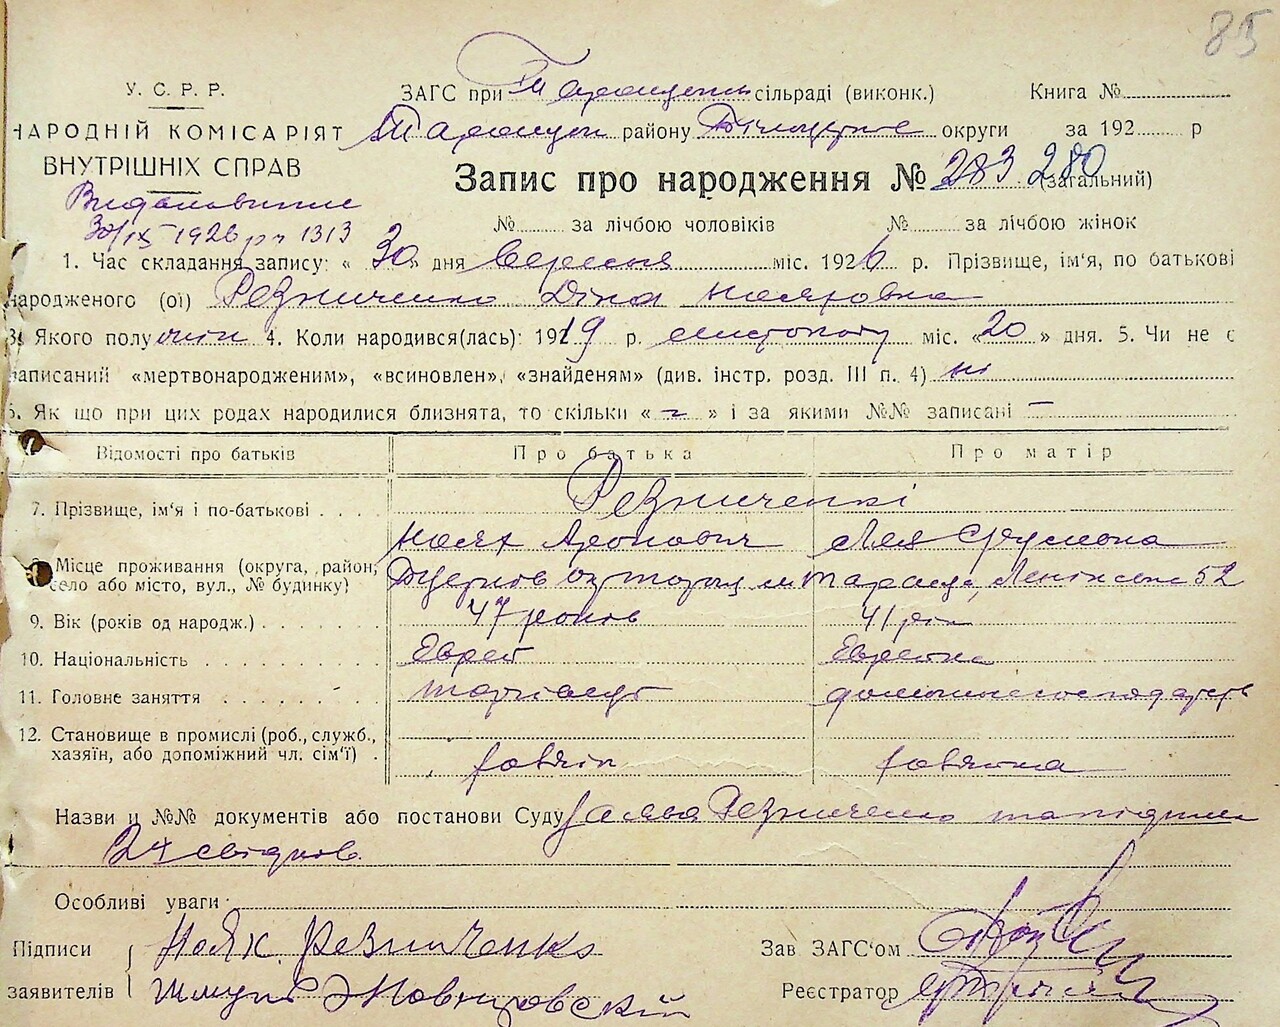 85
У. С. Р. Р.
НАРОДНІЙ КОМІСАРІЯТ
ВНУТРІШНІХ СПРАВ
30/IX 1926 р № 1313
ЗАГС при Таращанськ сільраді (виконк.) Книга №
Таращан району Білоцерків округи за 192 р
Запис про народження № 283 280 (загальний)
№ за лічбою чоловіків № за лічбою жінок
1. Час складання запису: « 30 » дня Вересня міс. 1926 р. Прізвище, ім'я, по батькові
народженого (ої) Резниченко Діна Нояховна
3. Якого полу жін 4. Коли народився(лась): 1919 р. листопаду міс. « 20 » дня. 5. Чи не є
записаний «мертвонародженим», «всиновлен», «знайденям» (див. інстр. розд. III п. 4) ні
6. Як що при цих родах народилися близнята, то скільки « – » і за якими №№ записані –
Відомості про батьків Про батька Про матір
7. Прізвище, ім'я і по-батькові . . . Резниченкі
Ноях Аронович Лея
8. Місце проживання (округа, район, село або місто, вул., № будинку) м Тараща, Ленінська 52
9. Вік (років од народж.) 47 років 41 рік
10. Національність Еврей Еврейка
11. Головне заняття
12. Становище в промислі (роб., служб., хазяїн, або допоміжний чл. сім'ї)
Назви и №№ документів або постанови Суду Заява Резниченко та підписи
2х свідків.
Особливі уваги
Підписи заявителів Ноях Резниченко
Шмуль
Зав. ЗАГС'ом
Реєстратор